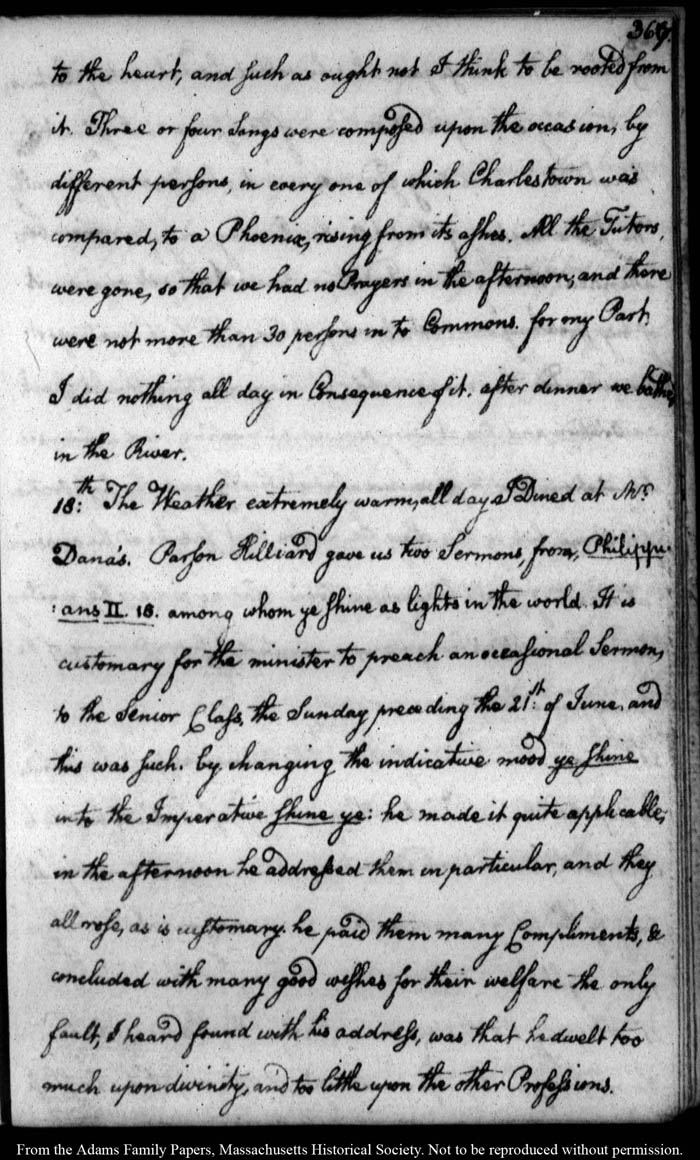 369.
to the heart, and such as ought not I think to be rooted from
it. Three or four Songs were composed upon the occasion, by
different persons, in every one of which Charlestown was
compared, to a Phoenix, rising from its ashes. All the Tutors,
were gone, so that we had no Prayers in the afternoon, and there
were not more than 30 persons in to Commons. for my Part
I did nothing all day in Consequence of it. after dinner we bathed
in the River.
18:th The Weather extremely warm, all day I Dined at Mr.
Dana's. Parson Hilliard gave us two Sermons, from, Philippi
:ans II. 15. among whom ye shine as lights in the world. It is
customary for the minister to preach an occasional Sermon,
to the Senior Class, the Sunday preceding the 21:st of June, and
this was such. by changing the indicative mood ye shine
into the Imperative shine ye: he made it quite applicable,
in the afternoon he addressed them in particular, and they
all rose, as is customary. he paid them many Compliments, &
concluded with many good wishes for their welfare the only
fault, I heard found with his address, was that he dwelt too
much upon divinity, and too little upon the other Professions.
From the Adams Family Papers, Massachusetts Historical Society. Not to be reproduced without permission.